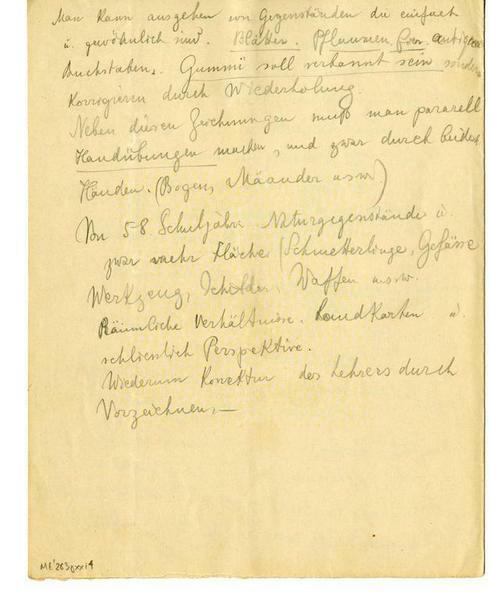 Man kann ausgehen von Gegenständen die einfach
u. gewöhnlich sind. Blätter. Pflaumen
Buchstaben. Gummi soll verbannt sein sondern
Korrigieren durch Wiederholung.
Neben diesen Zeichnungen muß man pararell
Handübungen machen, und zwar durch beide
Händen. (Bogen, Mäander usw)
Von 5-8 Schuljahre Naturgegenstände u.
zwar mehr Fläche (Schmetterlinge, Gefässe
Werkzeug, Schilder, Waffen usw.
Räumliche Verhältnisse. Landkarten u.
schliesslich Perspektive.
Wiederum Korrektur des Lehrers durch
Vorzeichnen.—